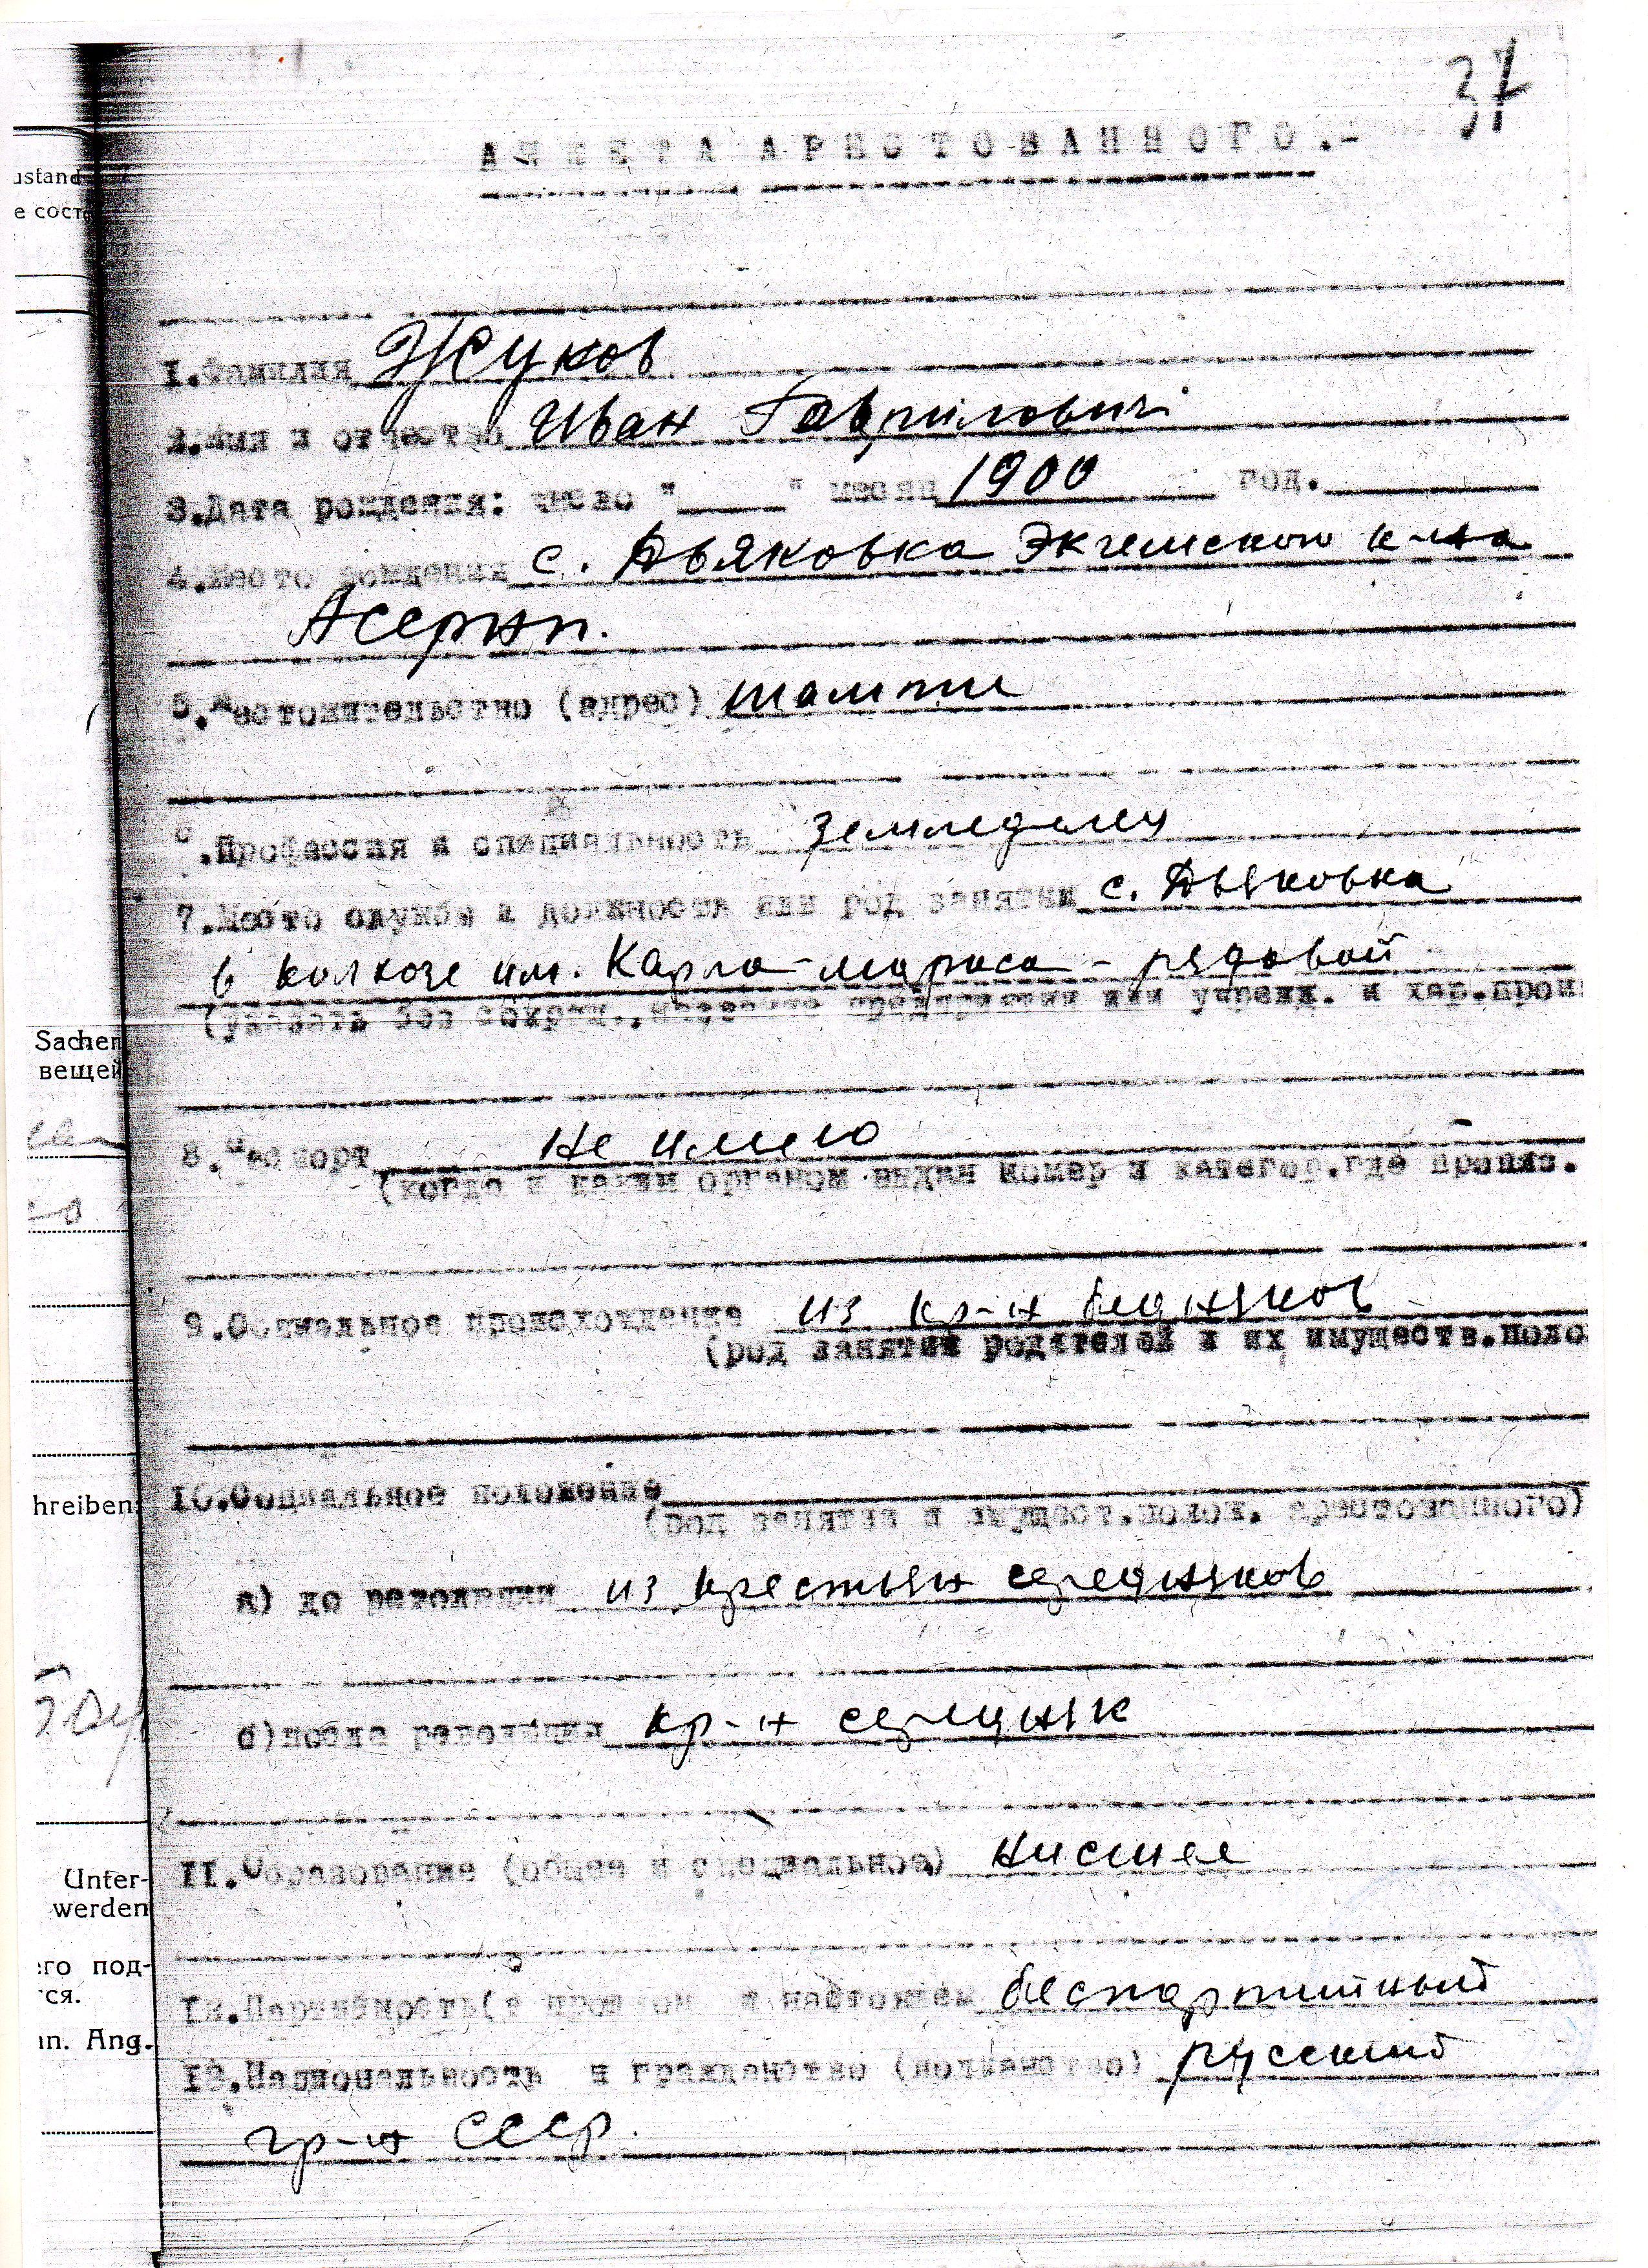 37
АНКЕТА АРЕСТОВАННОГО.-
ustand
е сост
1.Фамилия Жуков
2.Имя и отчество Иван Гаврилович
3.Дата рождения: число "____" месяц 1900 год.
4.Место рождения с. Дьяковка Экгемского к-на
Асернп.
5.Местожительство (адрес) там же
6.Профессия и специальность земледелец
7.Место службы и должность или род занятий с. Дьяковка
в колхозе им. Карла-Маркса - рядовой
(указать без сокращ., название предприятия или учрежд. и хар.произ
Sachen
вещей
8.Паспорт не имею
(когда и каким органом выдан номер и категор.где пропис.
9.Социальное происхождение из кр-н бедняков
(род занятий родителей и их имуществ.поло
hreiben:
10.Социальное положение
(род занятия и имущест.полож. арестованного)
а) до революции из крестьян середняков
б)после революции кр-н середняк
Unter-
werden
11.Образование (общее и специальное) нисшее
его под-
тся.
12.Партийность(в прошлом и настоящем беспартийный
in. Ang.
13.Национальность и гражданство (подданство) русский
гр-н СССР.